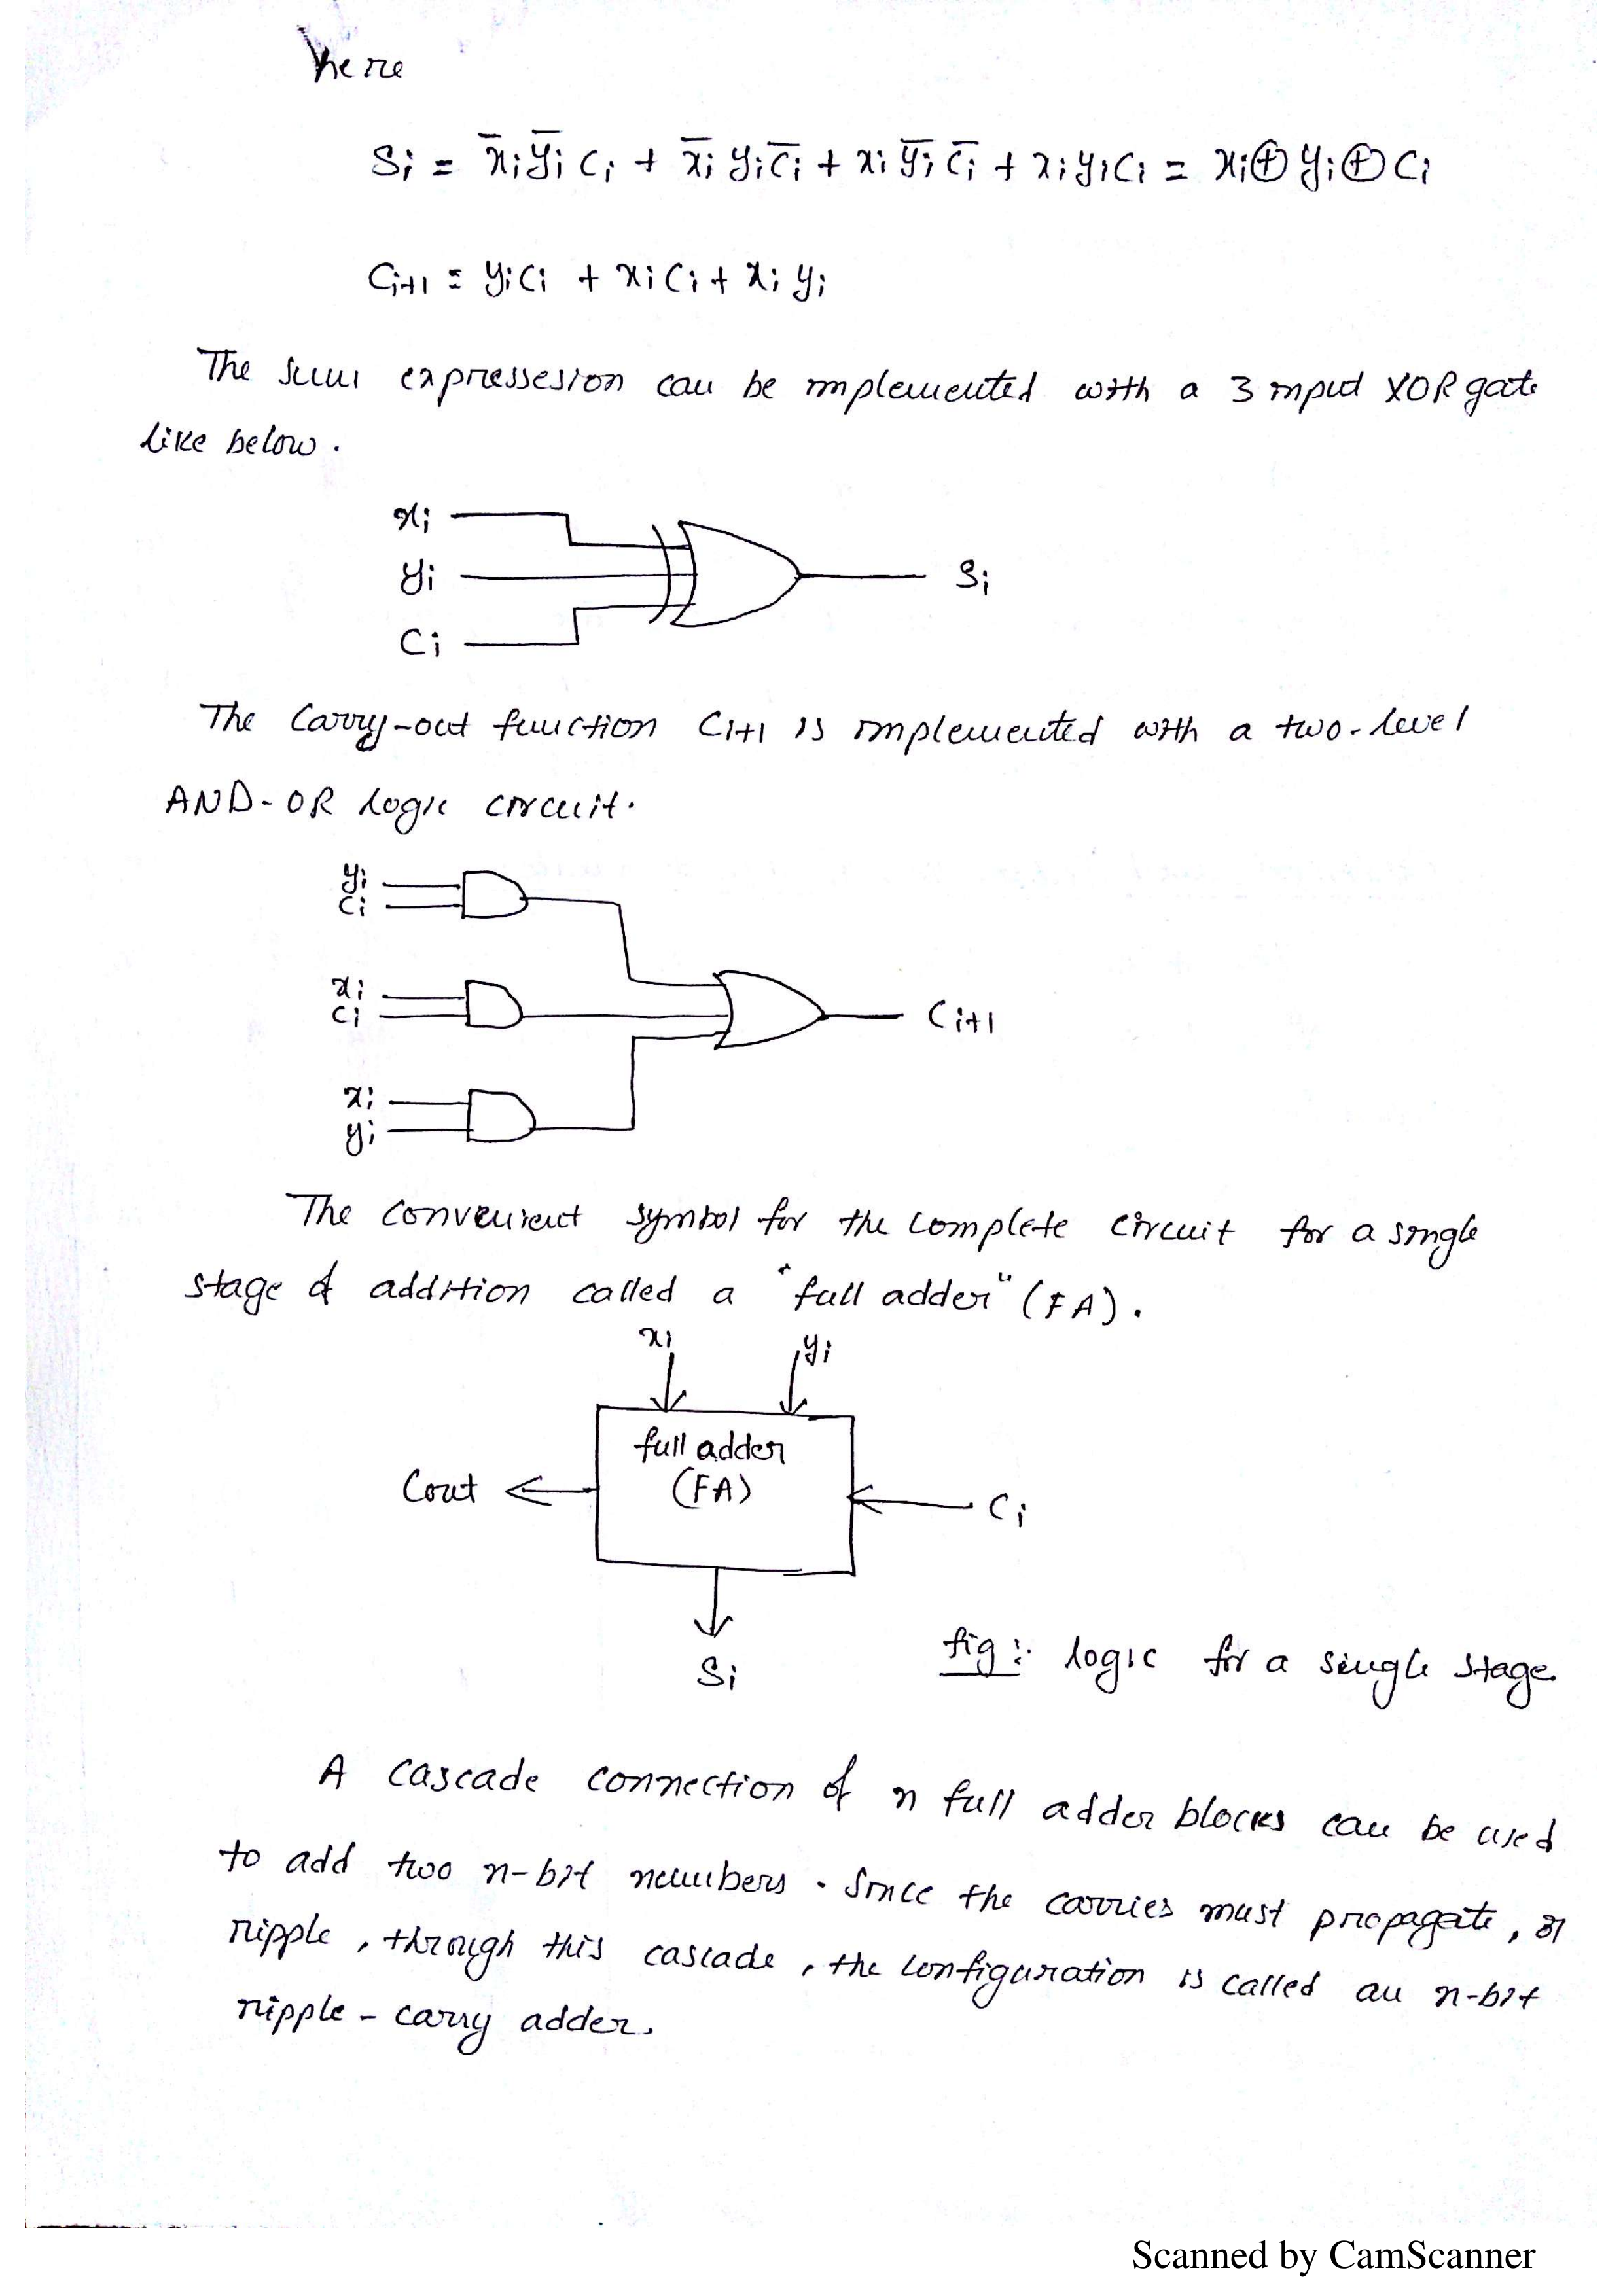 here
Si = x̄i ȳi Ci + x̄i yi c̄i + xi ȳi c̄i + xi yi Ci = xi ⊕ yi ⊕ Ci
Ci+1 = yi Ci + xi Ci + xi yi
The sum expressesion can be implemented with a 3 input XOR gate
like below.
xi
yi Si
Ci
The Carry-out function Ci+1 is implemented with a two-level
AND-OR logic circuit.
yi
Ci
xi
Ci Ci+1
xi
yi
The convenient symbol for the complete circuit for a single
stage of addition called a "full adder" (FA).
xi yi
full adder
Cout (FA) Ci
Si
fig:- logic for a single stage.
A cascade connection of n full adder blocks can be used
to add two n-bit numbers. Since the carries must propagate, or
ripple, through this cascade, the configuration is called an n-bit
ripple-carry adder.
Scanned by CamScanner